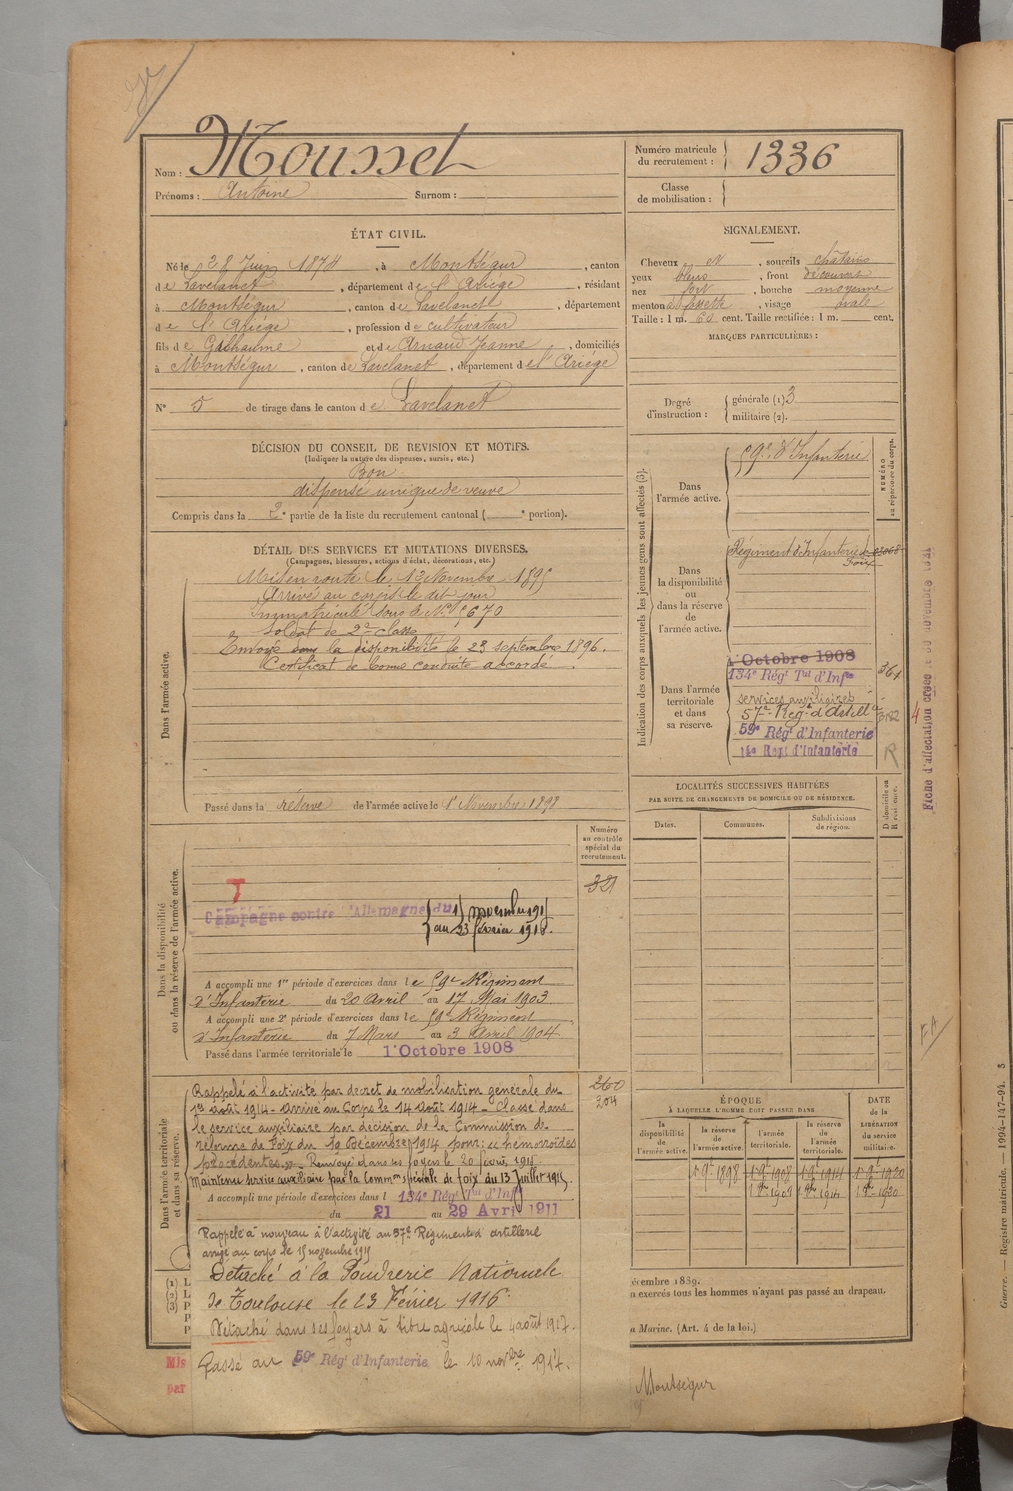 Nom : Mousset
Prénoms : Antoine Surnom :
Numéro matricule du recrutement : 1336
Classe de mobilisation :
ÉTAT CIVIL.
Né le 28 Juin 1874, à Montségur, canton
de Lavelanet, département de l'Ariège, résidant
à Montségur, canton de Lavelanet, département
de l'Ariège, profession de cultivateur
fils de Guilhaume et de Arnaud Jeanne, domiciliés
à Montségur, canton de Lavelanet, département de l'Ariège
N° 5 de tirage dans le canton de Lavelanet
SIGNALEMENT.
Cheveux N, sourcils châtains
yeux bleus, front découvert
nez fort, bouche moyenne
menton à fossette, visage ovale
Taille : 1 m. 60 cent. Taille rectifiée : 1 m. cent.
MARQUES PARTICULIÈRES :
Degré d'instruction : générale (1) 3
militaire (2).
DÉCISION DU CONSEIL DE REVISION ET MOTIFS.
(Indiquer la nature des dispenses, sursis, etc.)
Bon
dispense unique de veuve
Compris dans la 2e partie de la liste du recrutement cantonal ( e portion).
DÉTAIL DES SERVICES ET MUTATIONS DIVERSES.
(Campagnes, blessures, actions d'éclat, décorations, etc.)
Dans l'armée active.
Mis en route le 13 Novembre 1895
Arrivé au corps le dit jour
Immatriculé sous le N° 5670
Soldat de 2e classe
Envoyé dans la disponibilité le 23 septembre 1896.
Certificat de bonne conduite accordé.
Passé dans la réserve de l'armée active le 1er Novembre 1898
Indication des corps auxquels les jeunes gens sont affectés (3).
NUMÉRO au répertoire du corps.
Dans l'armée active.
59e d'Infanterie
Dans la disponibilité ou dans la réserve de l'armée active.
Régiment d'Infanterie de Foix
Dans l'armée territoriale et dans sa réserve.
1 Octobre 1908
134e Régt Tal d'Infie
361
services auxiliaires
57e Régt d'Artill
59e Régt d'Infanterie
14e Régt d'Infanterie
R
Fiche d'affectation créée le 30 novembre 1921
LOCALITÉS SUCCESSIVES HABITÉES
PAR SUITE DE CHANGEMENTS DE DOMICILE OU DE RÉSIDENCE.
Dates. Communes. Subdivisions de région.
D domicile ou R résidence.
Dans la disponibilité ou dans la réserve de l'armée active.
Numéro au contrôle spécial du recrutement.
321
T
Campagne contre l'Allemagne du 15 novembre 1915
au 23 février 1916.
A accompli une 1re période d'exercices dans le 59e Régiment
d'Infanterie du 20 Avril au 17 Mai 1903
A accompli une 2e période d'exercices dans le 59e Régiment
d'Infanterie du 7 Mars au 3 Avril 1904
Passé dans l'armée territoriale le 1 Octobre 1908
Dans l'armée territoriale et dans sa réserve.
260
204
Rappelé à l'activité par decret de mobilisation générale du
1er août 1914 - Arrivé au Corps le 14 Août 1914 - Classé dans
le service auxiliaire par décision de la Commission de
réforme de Foix du 19 Décembre 1914 pour : hémorroïdes
procedentes. - Renvoyé dans ses foyers le 20 février 1915
Maintenu service auxiliaire par la Common spéciale de Foix du 13 Juillet 1915
A accompli une période d'exercices dans l 134e Régt Tal d'Infie
du 21 au 29 Avril 1911
Rappelé à nouveau à l'activité au 57e Régiment d'artillerie
arrivé au corps le 15 novembre 1915
Détaché à la Poudrerie Nationale
de Toulouse le 23 Février 1916.
Détaché dans ses foyers à titre agricole le 4 août 1917.
Passé au 59e Régt d'Infanterie le 10 novbre 1917.
ÉPOQUE
À LAQUELLE L'HOMME DOIT PASSER DANS
la disponibilité de l'armée active.
la réserve de l'armée active.
l'armée territoriale.
la réserve de l'armée territoriale.
DATE de la LIBÉRATION du service militaire.
1 9e 1898 1 9e 1908 1 9e 1914 1 9e 1920
1 8e 1908 1 8e 1914 1 8e 1920
(1) L
(2) L
(3) P
P
P
écembre 1889.
n exercés tous les hommes n'ayant pas passé au drapeau.
a Marine. (Art. 4 de la loi.)
Mis
par
Montségur
Guerre. — Registre matricule. — 1994-147-94. 3